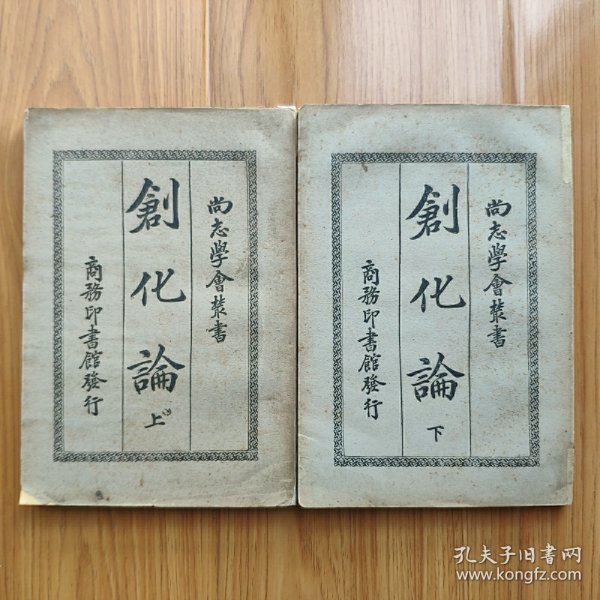 尚志學會叢書
創化論
上
商務印書館發行
尚志學會叢書
創化論
下
商務印書館發行
孔夫子旧书网
www.kongfz.com